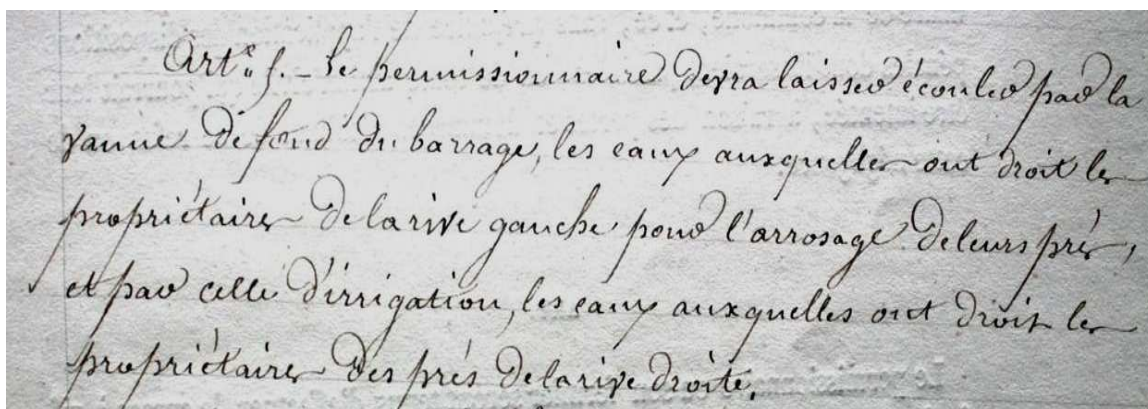 Art.e 5. – Le permissionnaire devra laisser écouler par la
vanne de fond du barrage, les eaux auxquelles ont droit les
propriétaires de la rive gauche pour l'arrosage de leurs prés,
et par celle d'irrigation, les eaux auxquelles ont droit les
propriétaires des prés de la rive droite.